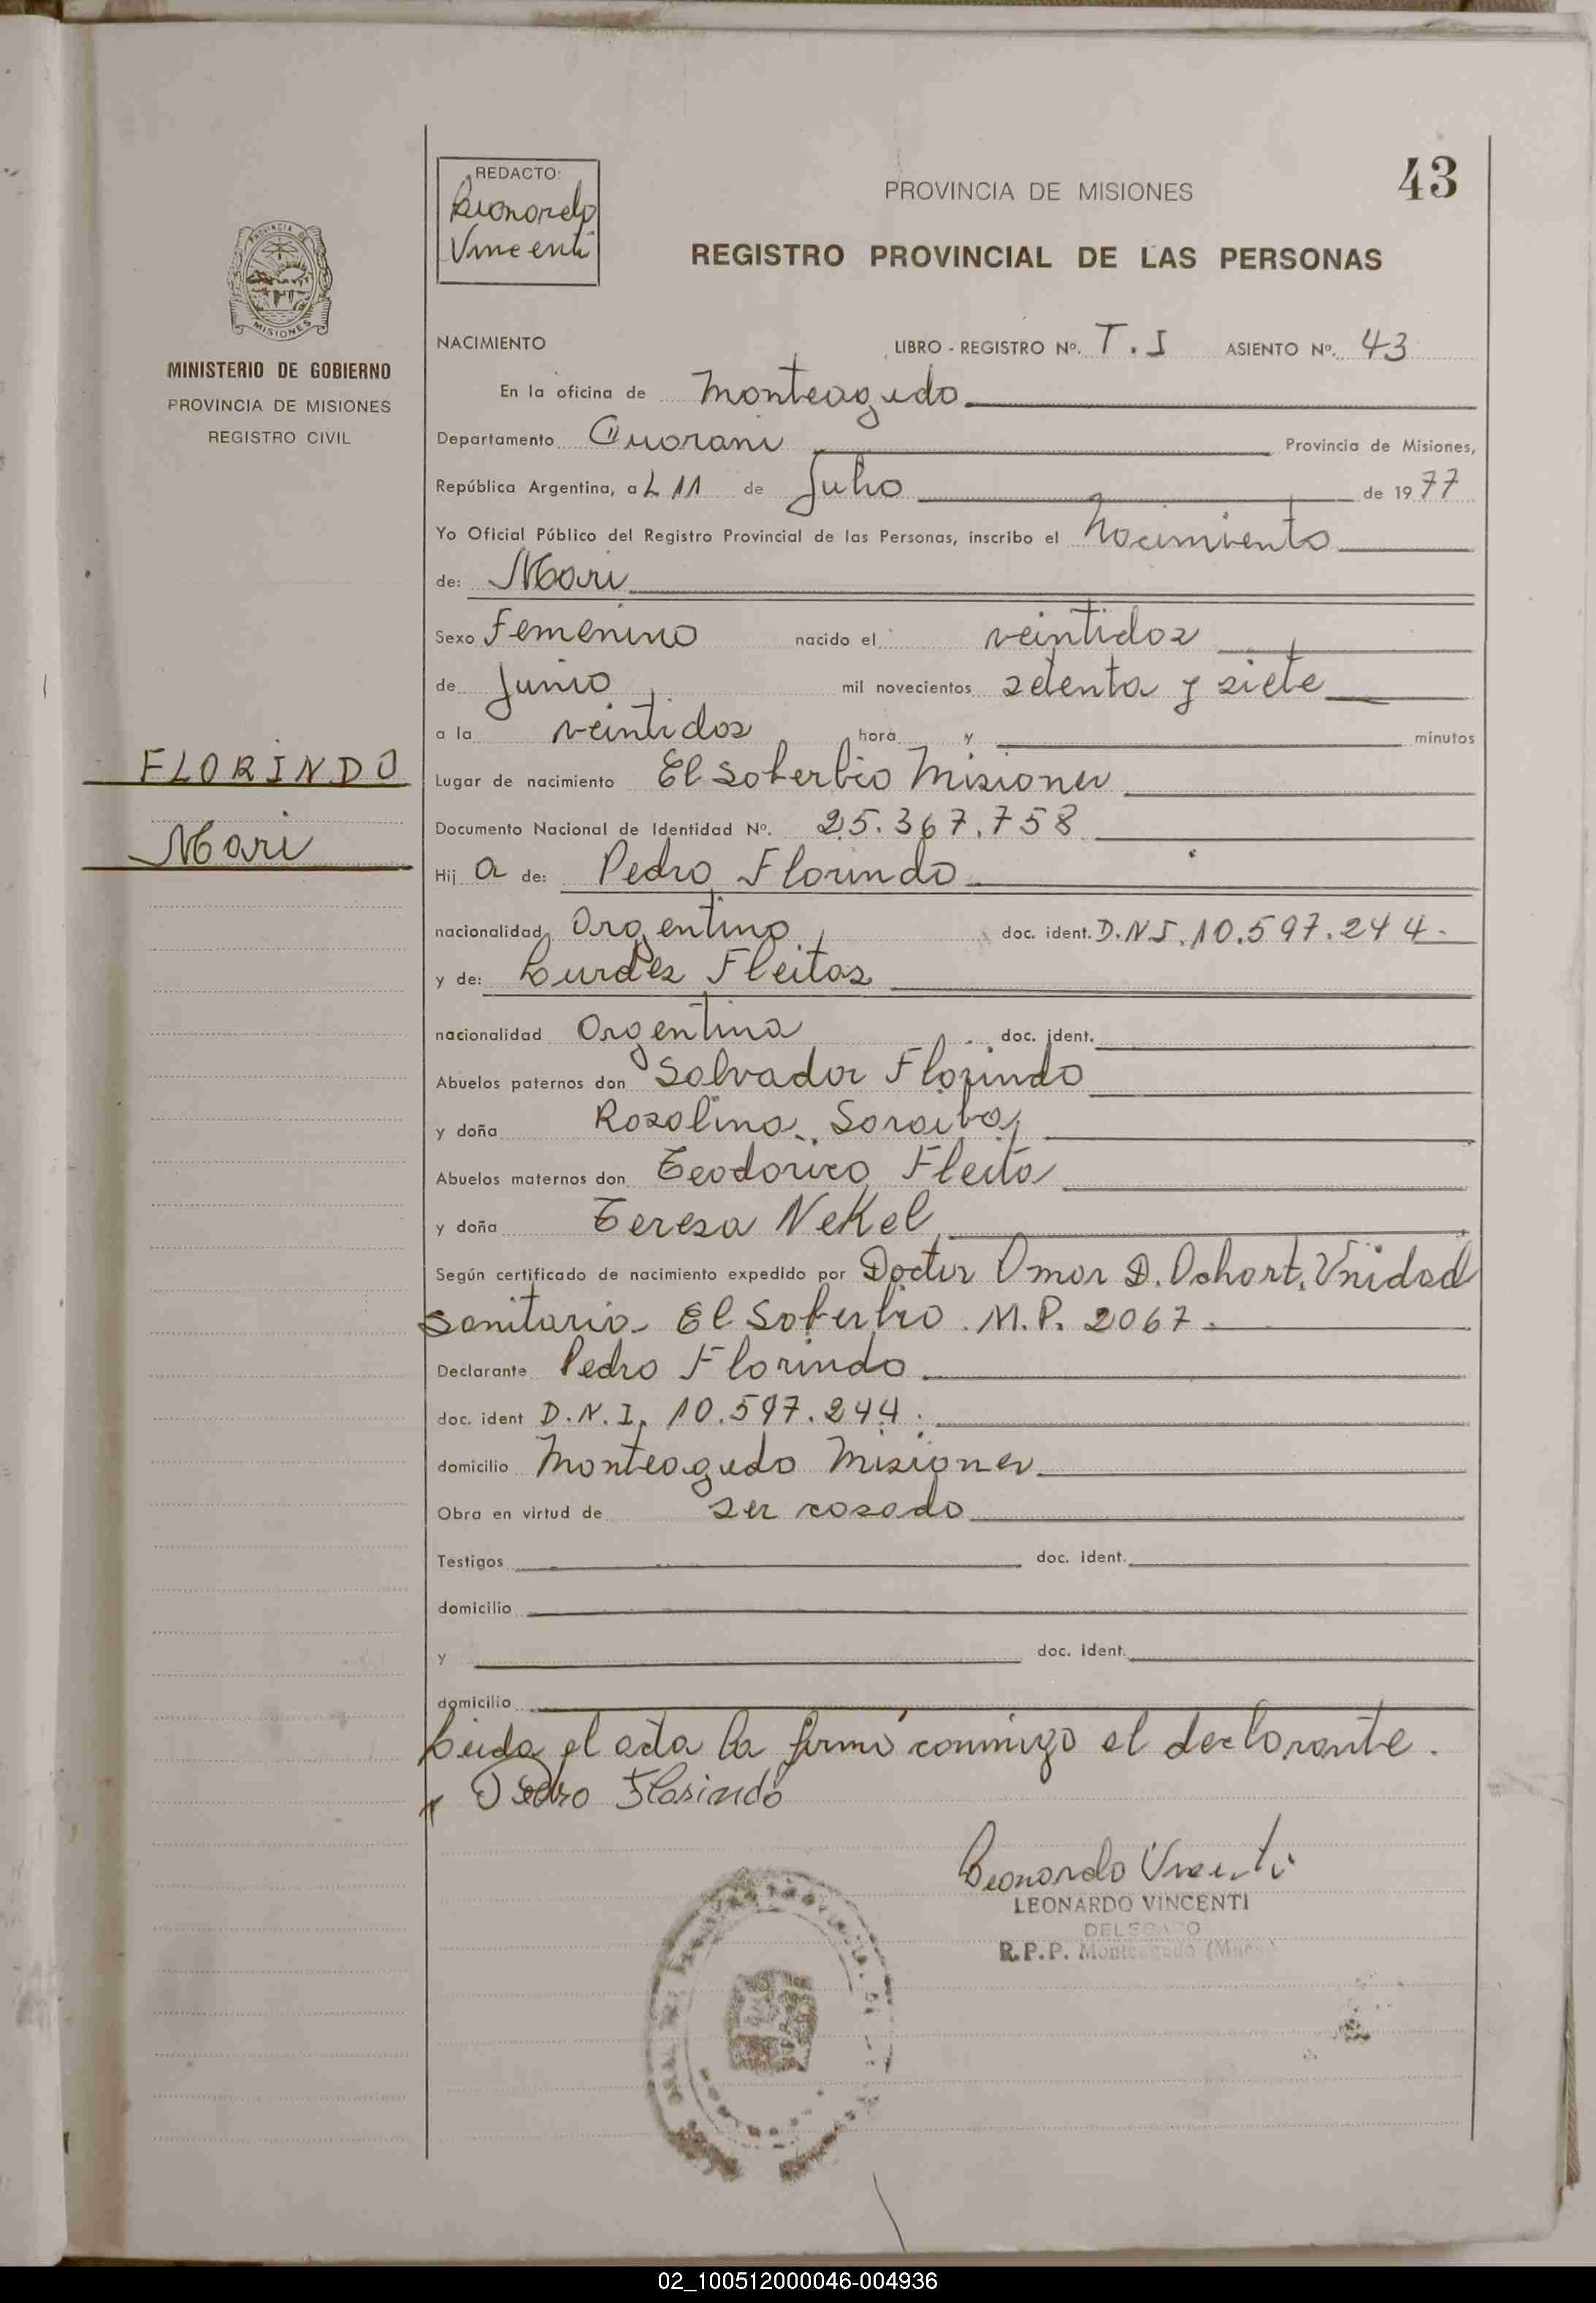 43
REDACTO:
Leonardo
Vincenti
PROVINCIA DE MISIONES
REGISTRO PROVINCIAL DE LAS PERSONAS
PROVINCIA DE
MISIONES
MINISTERIO DE GOBIERNO
PROVINCIA DE MISIONES
REGISTRO CIVIL
FLORINDO
Mari
NACIMIENTO LIBRO - REGISTRO Nº. T. I ASIENTO Nº. 43
En la oficina de Monteagudo
Departamento Guarani Provincia de Misiones,
República Argentina, a L 11 de Julio de 19 77
Yo Oficial Público del Registro Provincial de las Personas, inscribo el Nacimiento
de: Mari
Sexo Femenino nacido el veintidos
de Junio mil novecientos setenta y siete
a la veintidos hora y minutos
Lugar de nacimiento El Soberbio Misiones
Documento Nacional de Identidad Nº. 25.367.758
Hij a de: Pedro Florindo
nacionalidad Argentino doc. ident. D.N.I. 10.597.244.
y de: Lurdes Fleitas
nacionalidad Argentina doc. ident.
Abuelos paternos don Salvador Florindo
y doña Rosalina Saraiba
Abuelos maternos don Teodorico Fleita
y doña Teresa Nekel
Según certificado de nacimiento expedido por Doctor Omar D. Ochart. Unidad
Sanitaria El Soberbio. M.P. 2067.
Declarante Pedro Florindo
doc. ident D.N.I. 10.597.244.
domicilio Monteagudo Misiones
Obra en virtud de ser casado
Testigos doc. ident.
domicilio
y doc. ident.
domicilio
Leida el acta la firmó conmigo el declarante.
Pedro Florindo
Leonardo Vincenti
LEONARDO VINCENTI
DELEGADO
R.P.P. Monteagudo
02_100512000046-004936